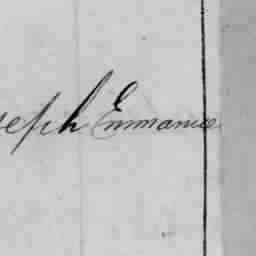 seph Emmanue